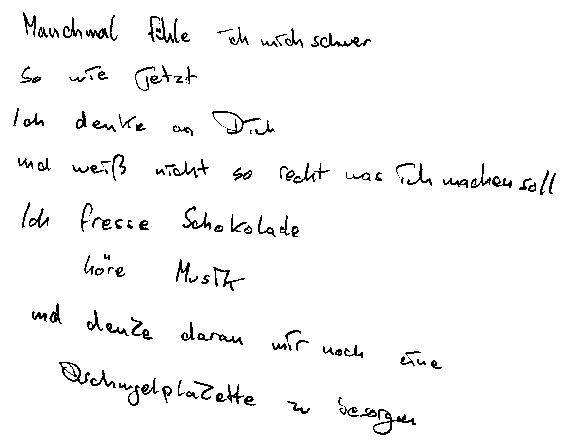 Manchmal fühle ich mich schwer
so wie jetzt
Ich denke an Dich
und weiß nicht so recht was ich machen soll
Ich fresse Schokolade
höre Musik
und denke daran mir noch eine
Dschungelplakette zu besorgen